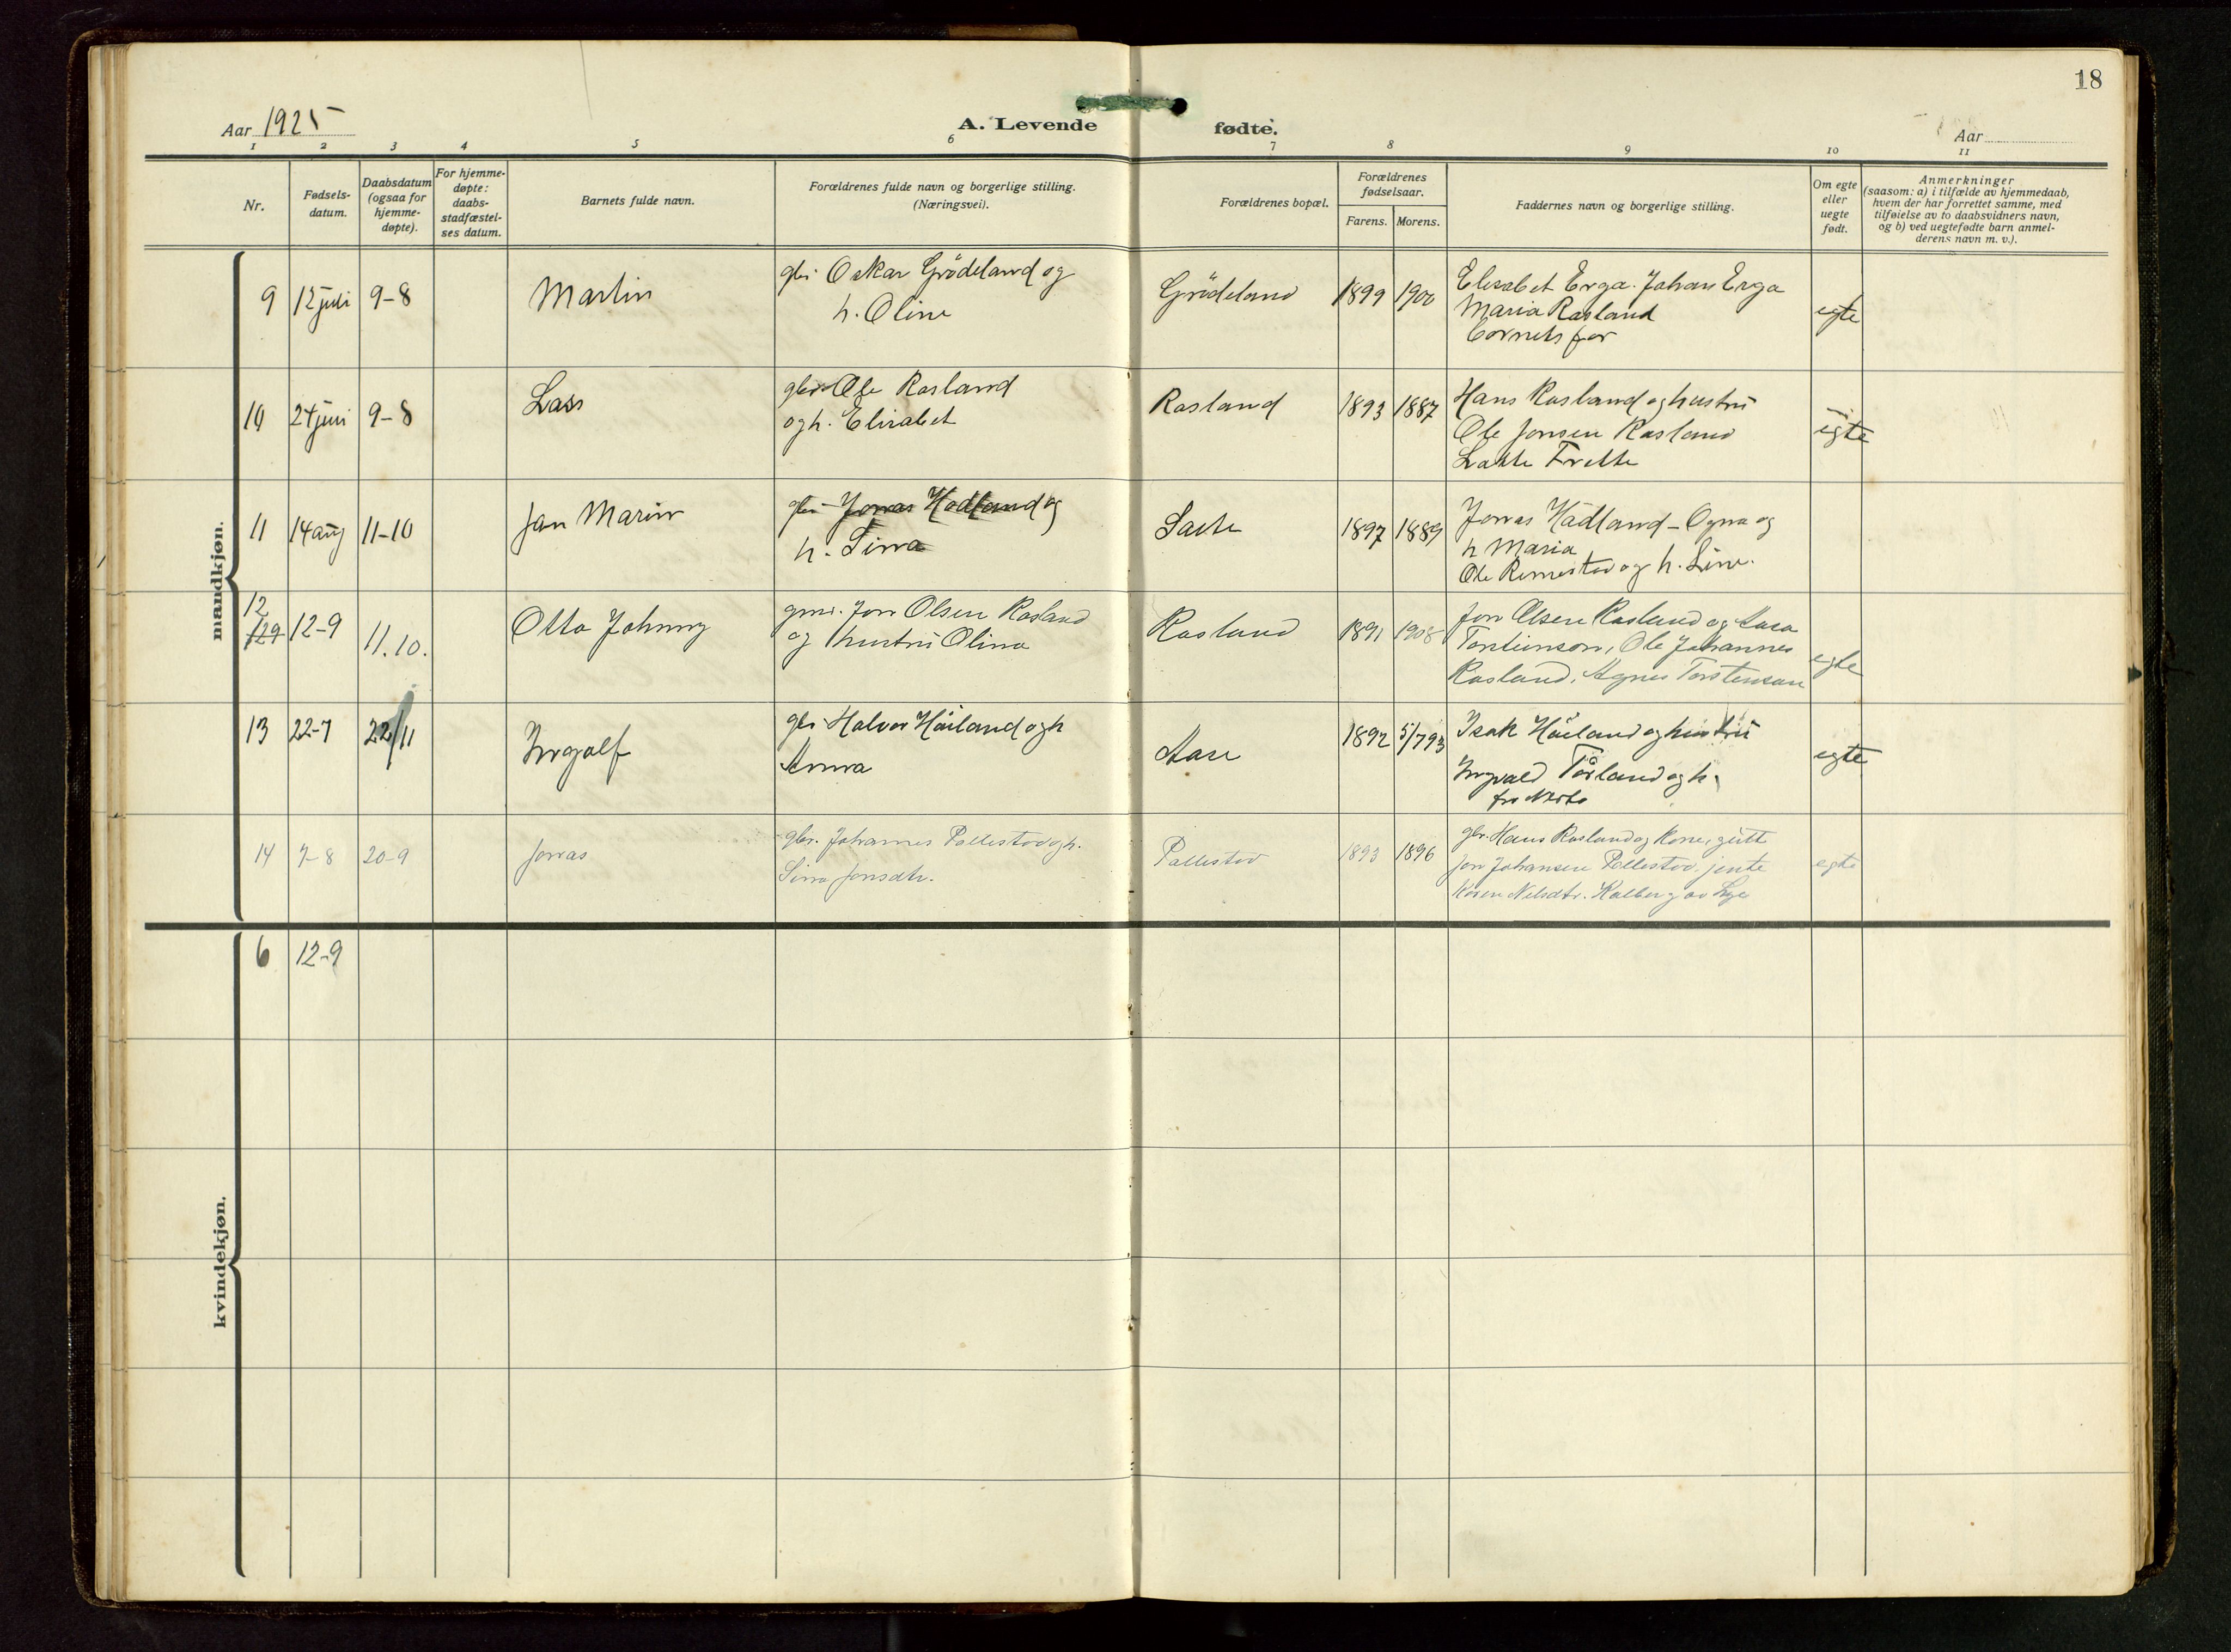 18
Aar 1925
A. Levende fødte.
Aar
1 2 3 4 5 6 7 8 9 10 11
Nr.
Fødsels-
datum.
Daabsdatum
(ogsaa for
hjemme-
døpte).
For hjemme-
døpte:
daabs-
stadfæstel-
ses datum.
Barnets fulde navn.
Forældrenes fulde navn og borgerlige stilling.
(Næringsvei).
Forældrenes bopæl.
Forældrenes
fødselsaar.
Farens. Morens.
Faddernes navn og borgerlige stilling.
Om egte
eller
uegte
født.
Anmerkninger
(saasom: a) i tilfælde av hjemmedaab,
hvem der har forrettet samme, med
tilføielse av to daabsvidners navn,
og b) ved uegtefødte barn anmel-
derens navn m. v.).
mandkjøn.
9 12 juli 9-8 Martin
gbr. Oskar Grödeland og
h. Oline
Grödeland 1899 1900
Elisabet Erga. Johan Erga
Maria Rasland
barnets far
egte
10 24 juni 9-8 Lars
gbr. Ole Rasland
og h. Elisabet
Rasland 1893 1887
Hans Rasland og hustru
Ole Jonsen Rasland
egte
11 14 aug 11-10 Jan Marin
gbr. Jonas Hadland og
h. Sina
1897 1889
Jonas Hadland - Ogna og
h Maria
Ole Rimestad og h. Line.
12
12-9 11.10. Otto Johnny
Jon Olsen Rasland
og hustru Olina
Rasland 1891 1908
Jon Olsen Rasland og
Ole Johannes
Rasland, Agnes Torstenson
egte
13 22-7 22/11 Ingolf
gbr. Halvor Håiland og h
Anna
Aase 1892 5/7 93
Isak Håiland og hustru
Ingvald Torland og h.
egte
14 7-8 20-9 Jonas
gbr. Johannes Pallestad og h.
Sina Jonsdtr.
Pallestad 1893 1896
gbr. Hans Rasland og kone, gutt
Jon Johansen Pallestad, jente
Karen Nilsdtr. Kalberg av Lye
egte
kvindekjøn.
6 12-9